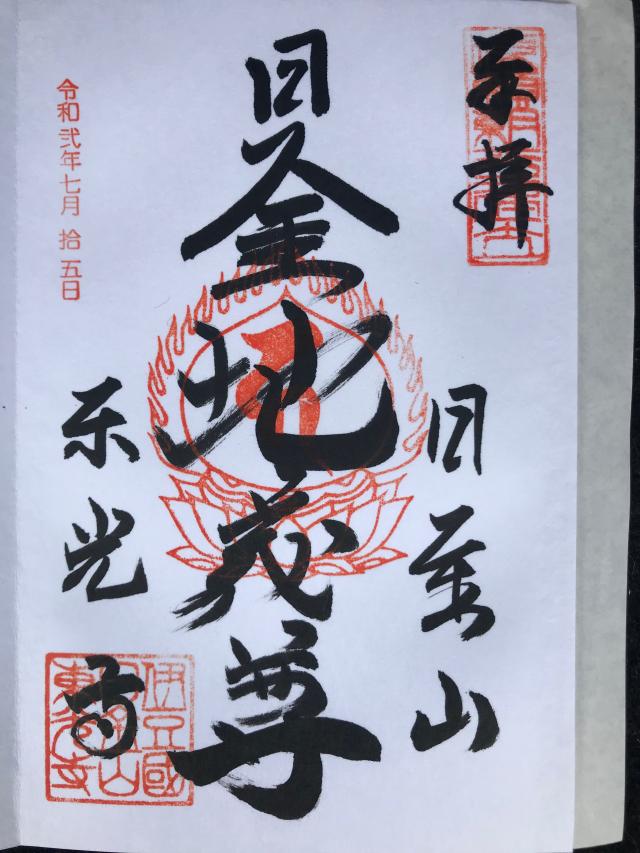 奉拝
日金山
日金地蔵尊
令和弐年七月 拾五日
東光寺
伊豆國
日金山
東光寺